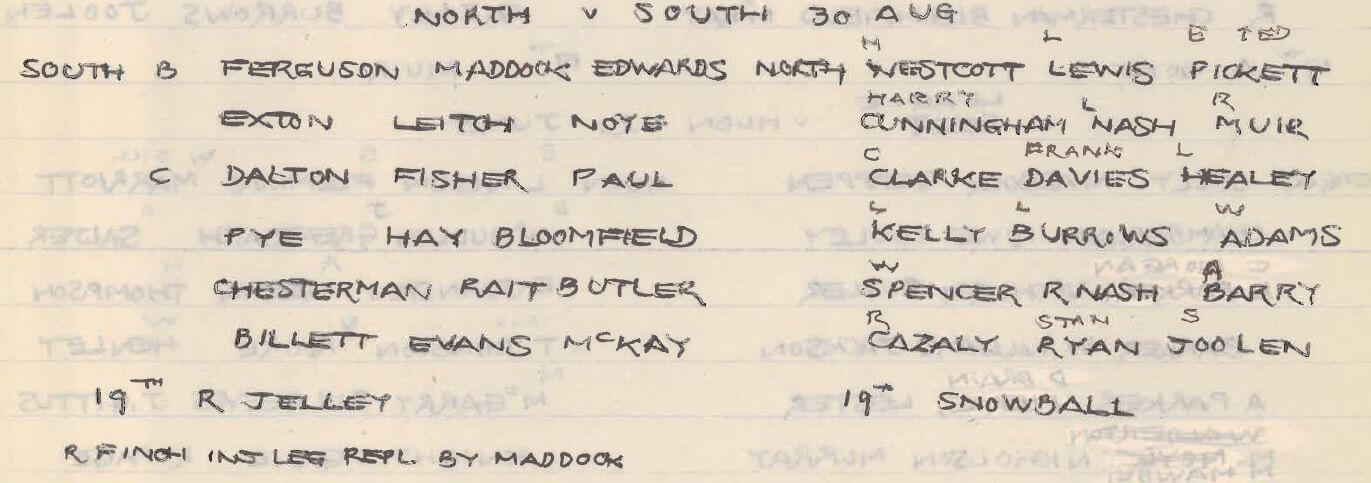 NORTH v SOUTH 30 AUG
H L E TED
SOUTH B FERGUSON MADDOCK EDWARDS NORTH WESTCOTT LEWIS PICKETT
HARRY L R
EXTON LEITCH NOYE CUNNINGHAM NASH MUIR
C FRANK L
C DALTON FISHER PAUL CLARKE DAVIES HEALEY
L L W
PYE HAY BLOOMFIELD KELLY BURROWS ADAMS
W A
CHESTERMAN RAIT BUTLER SPENCER R NASH BARRY
R STAN S
BILLETT EVANS McKAY CAZALY RYAN JOOLEN
19TH R JELLEY 19TH SNOWBALL
R FINCH INJ LEG REPL. BY MADDOCK